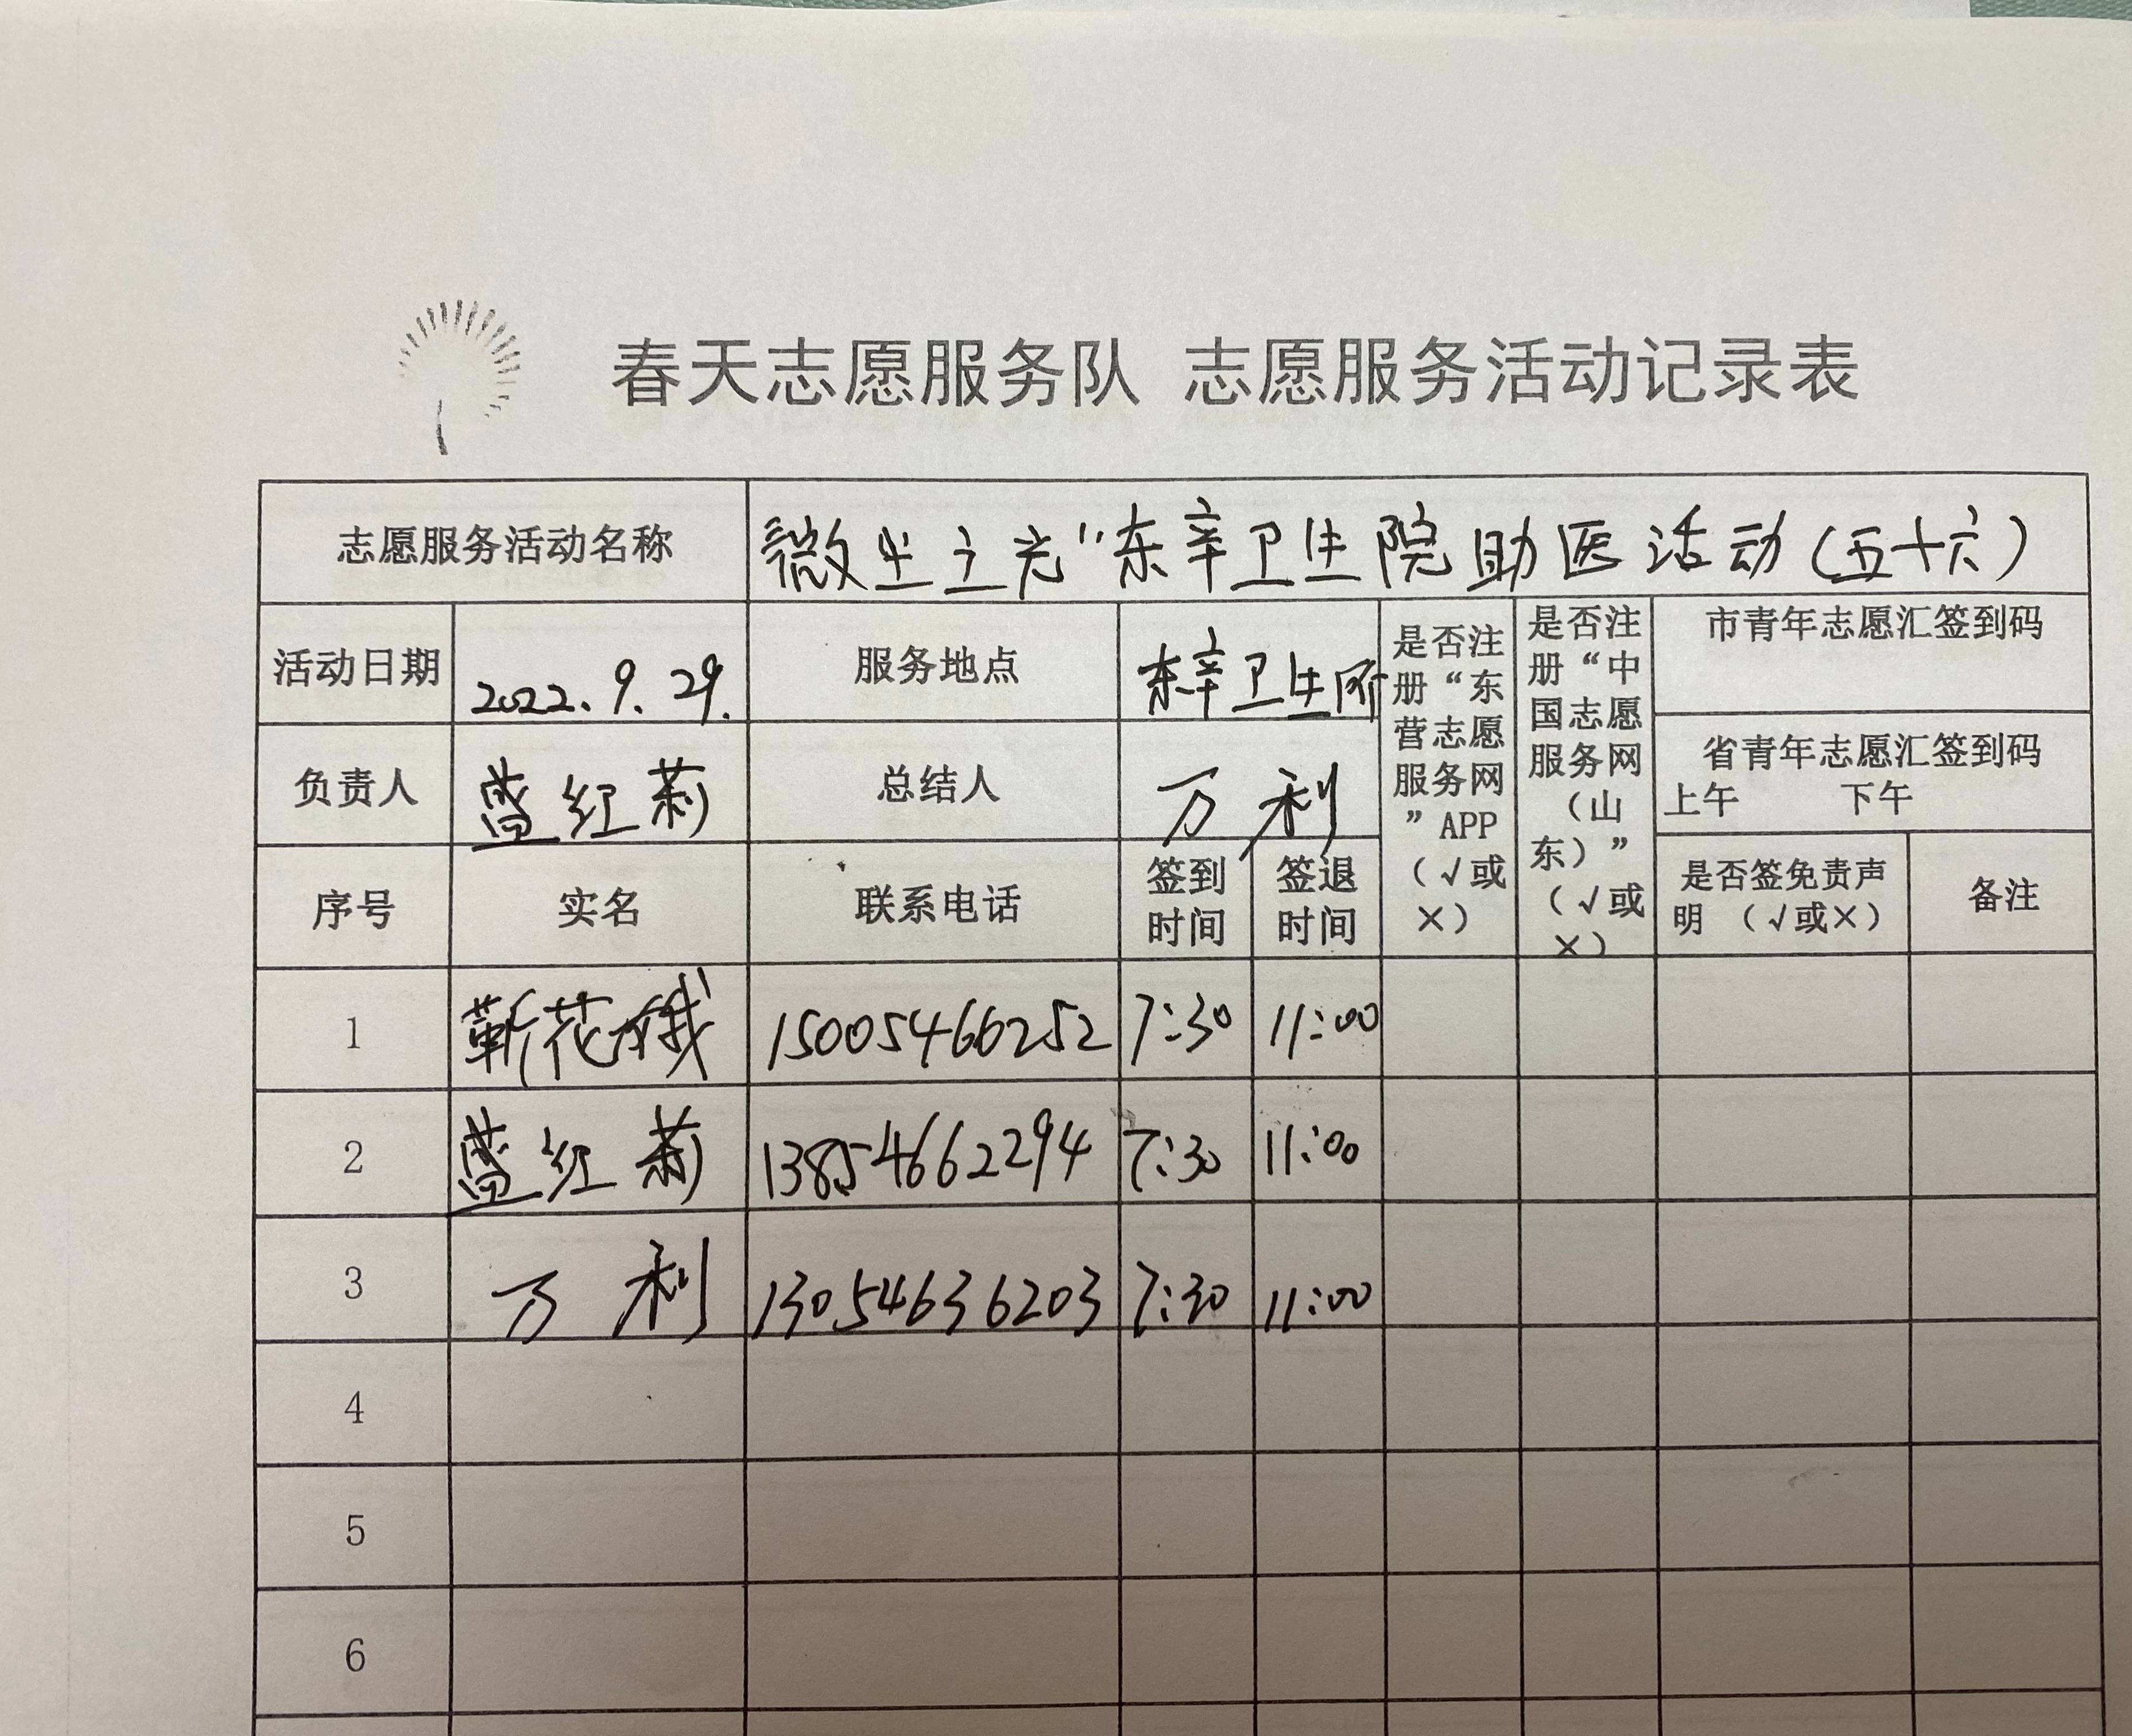 春天志愿服务队 志愿服务活动记录表
志愿服务活动名称 “微尘之光”东辛卫生院助医活动(五十六)
活动日期 2022.9.29. 服务地点 东辛卫生所
是否注册“东营志愿服务网”APP（√或×）
是否注册“中国志愿服务网（山东）”（√或×）
市青年志愿汇签到码
省青年志愿汇签到码
上午 下午
负责人 红莉 总结人 万利
序号 实名 联系电话 签到时间 签退时间 是否签免责声明 （√或×） 备注
1 靳花娥 15005466252 7:30 11:00
2 红莉 13854662294 7:30 11:00
3 万利 13054636203 7:30 11:00
4
5
6